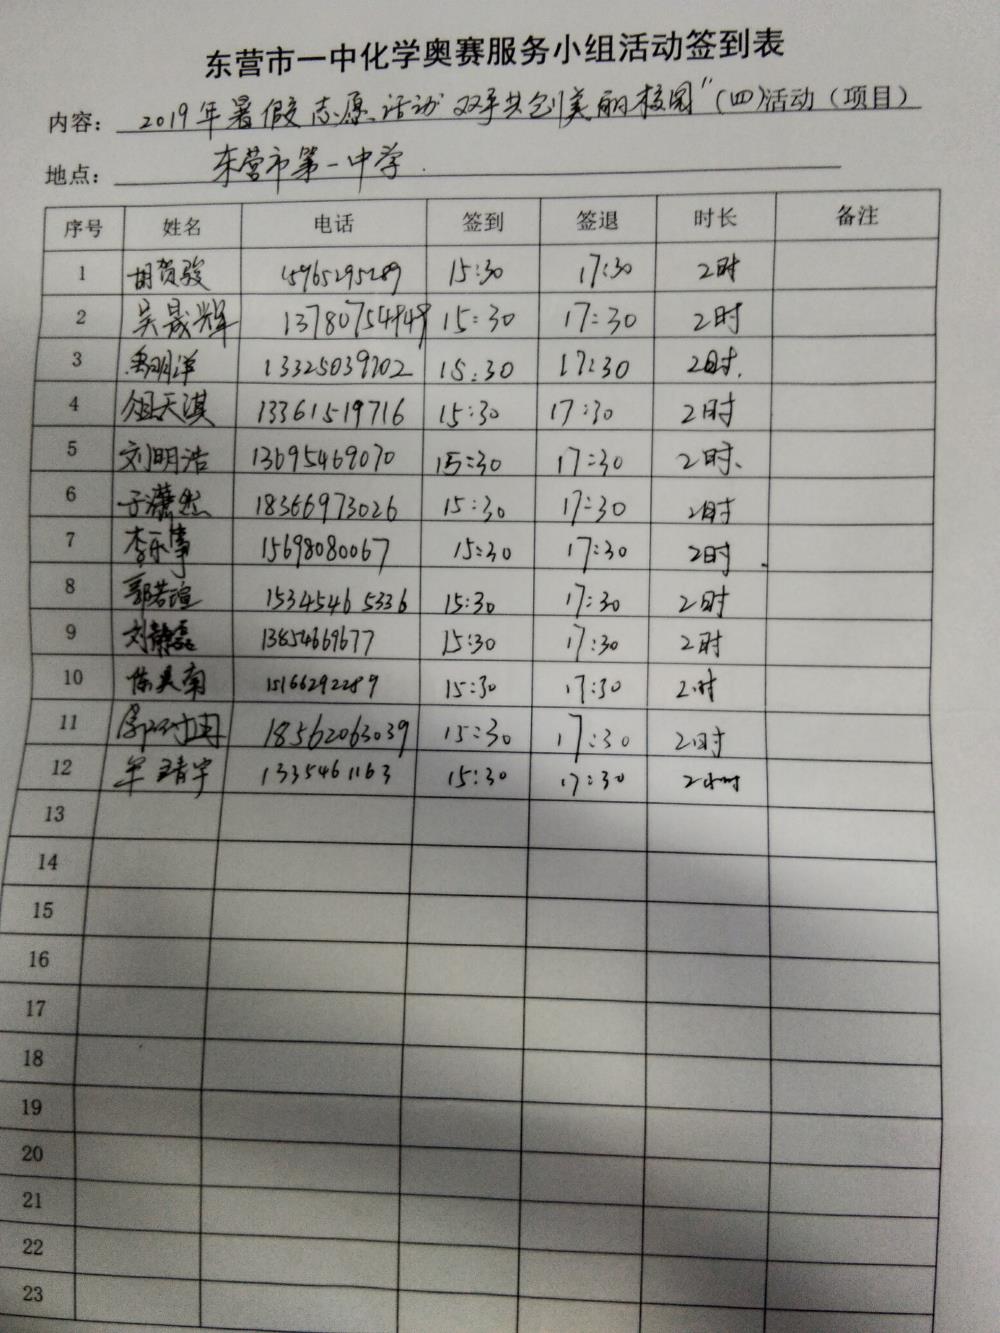 东营市一中化学奥赛服务小组活动签到表
内容： 2019年暑假志愿活动"双手共创美丽校园"(四)活动（项目）
地点： 东营市第一中学.
序号 姓名 电话 签到 签退 时长 备注
1 胡贺骏 15965295289 15:30 17:30 2时
2 吴晟辉 13780754949 15:30 17:30 2时
3 明洋 13325039702 15:30 17:30 2时.
4 天淇 13361519716 15:30 17:30 2时
5 刘明浩 13695469070 15:30 17:30 2时、
6 于潇然 18366973026 15:30 17:30 2时
7 李乐事 15698080067 15:30 17:30 2时
8 郭若瑄 15345465336 15:30 17:30 2时
9 刘静磊 13854669677 15:30 17:30 2时
10 陈昊南 15166292289 15:30 17:30 2时
11 18562063039 15:30 17:30 2时
12 宇 1335461163 15:30 17:30 2小时
13
14
15
16
17
18
19
20
21
22
23